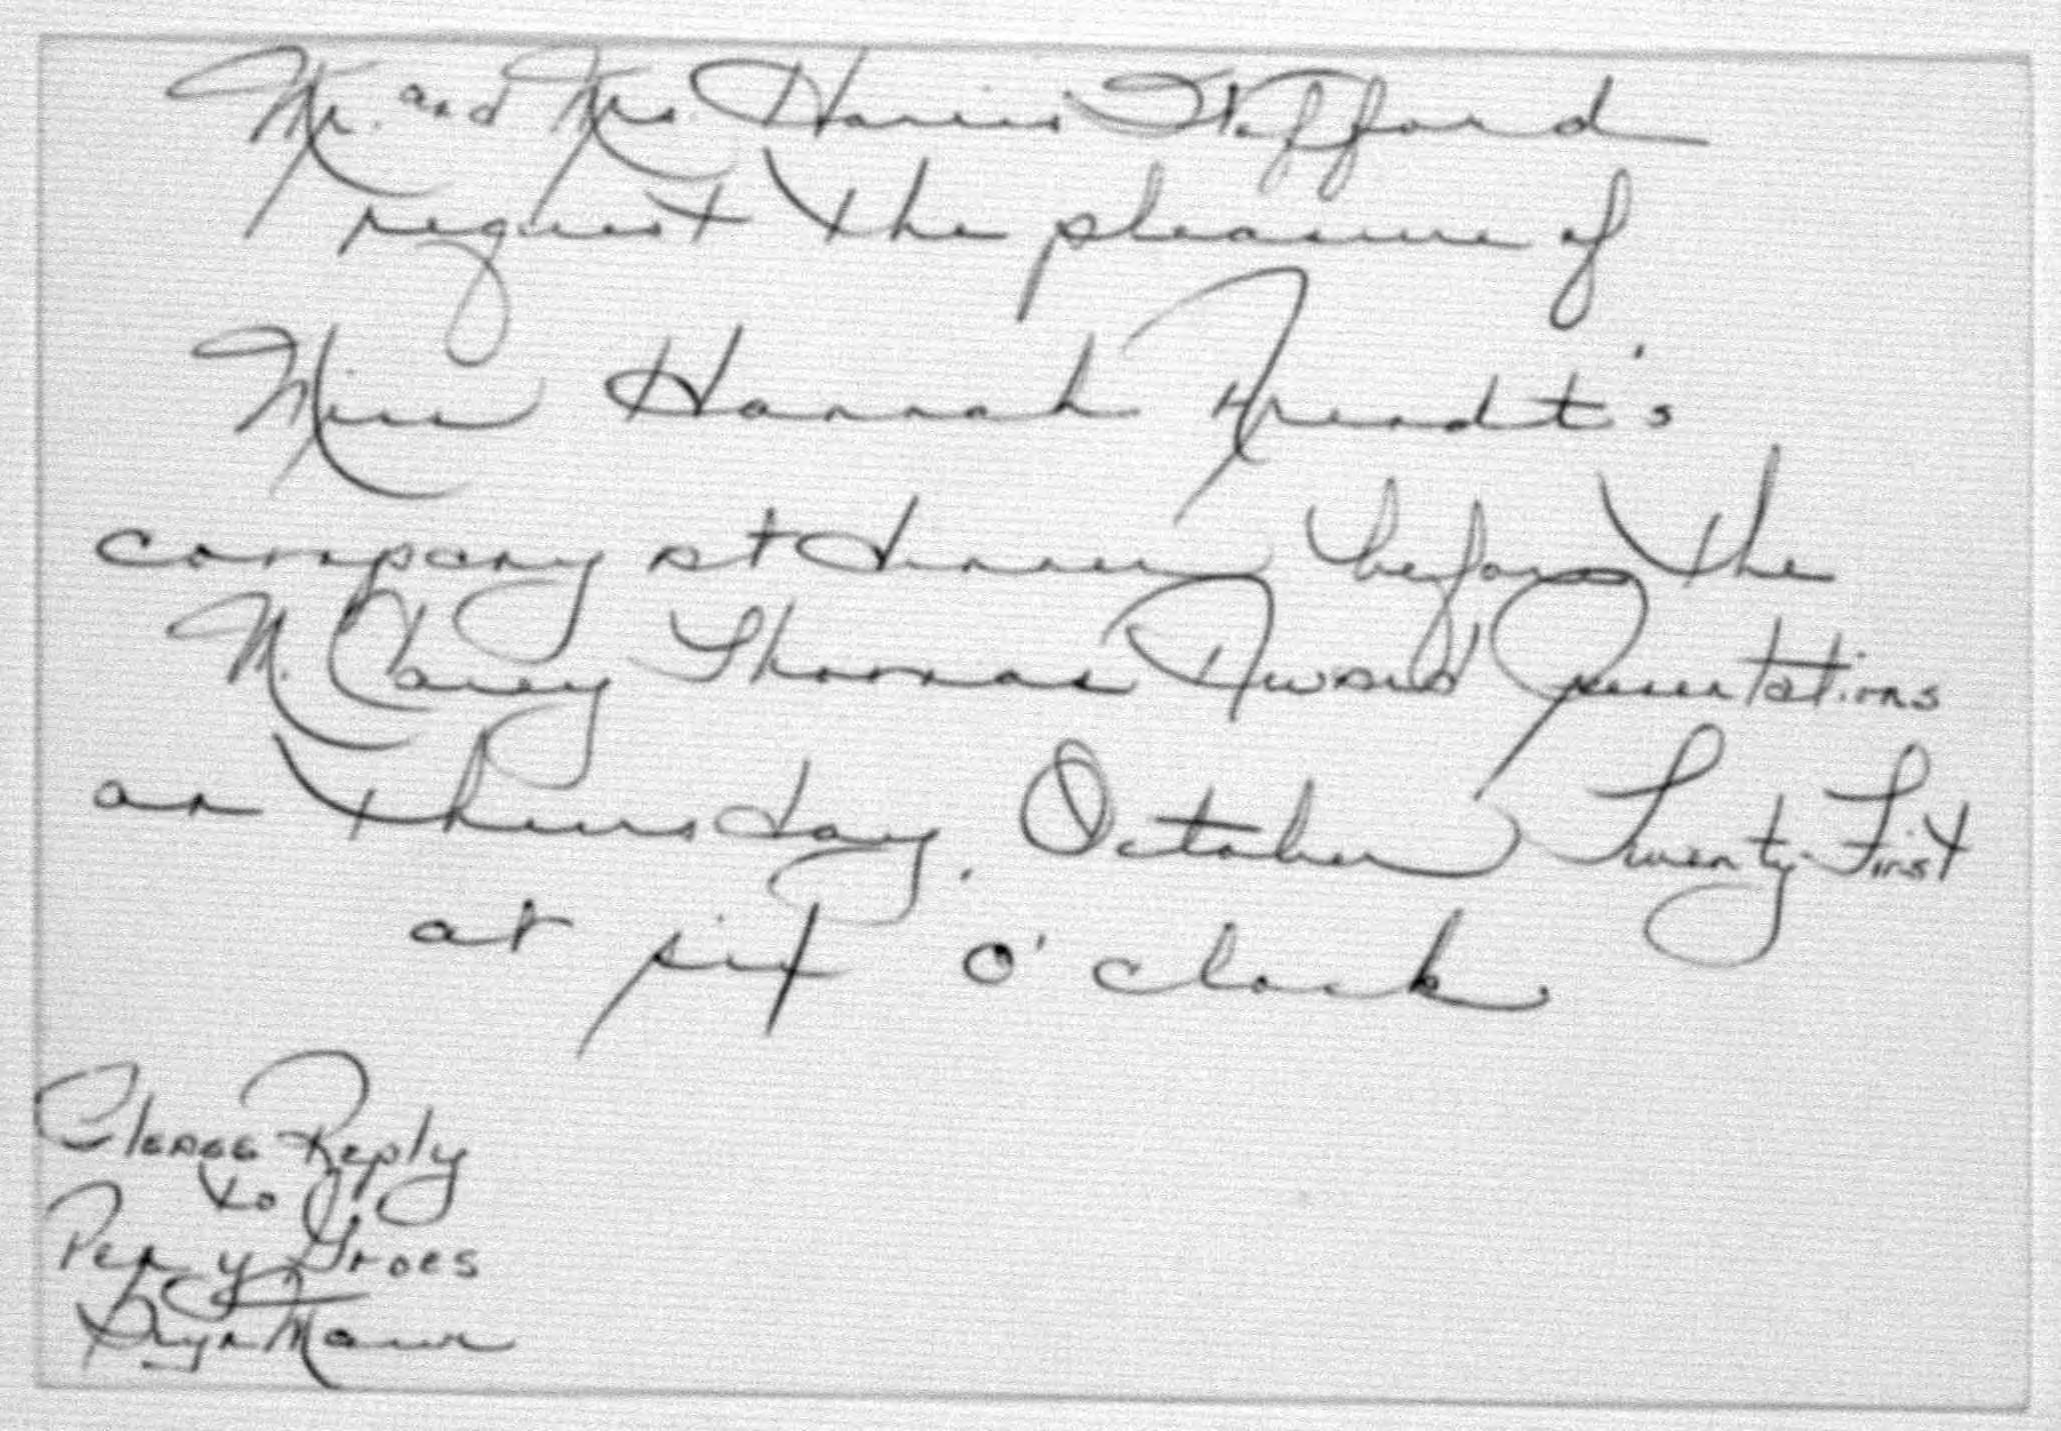 Mr. and Mrs. Harris Wofford
request the pleasure of
Miss Hannah Arendt's
company at dinner before the
M. Carey Thomas Award Presentations
on Thursday, October Twenty-First
at six o'clock
Please Reply
to
Pen y Groes
Bryn Mawr